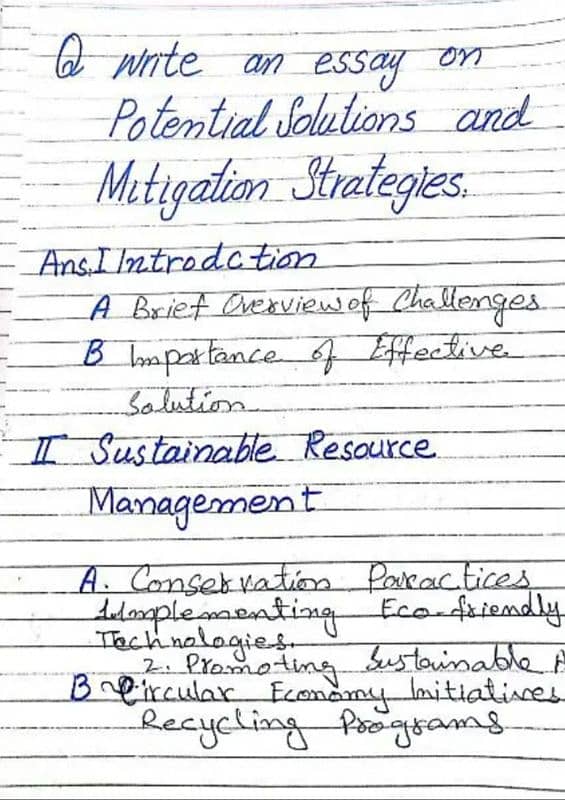 Q Write an essay on
Potential Solutions and
Mitigation Strategies.
Ans. I Introdction
A Brief Overview of Challenges
B Importance of Effective
Solution
II Sustainable Resource
Management
A. Conservation Paractices
1. Implementing Eco-friendly
Technologies.
2. Promoting Sustainable A
B Circular Economy Initiatives
Recycling Programs